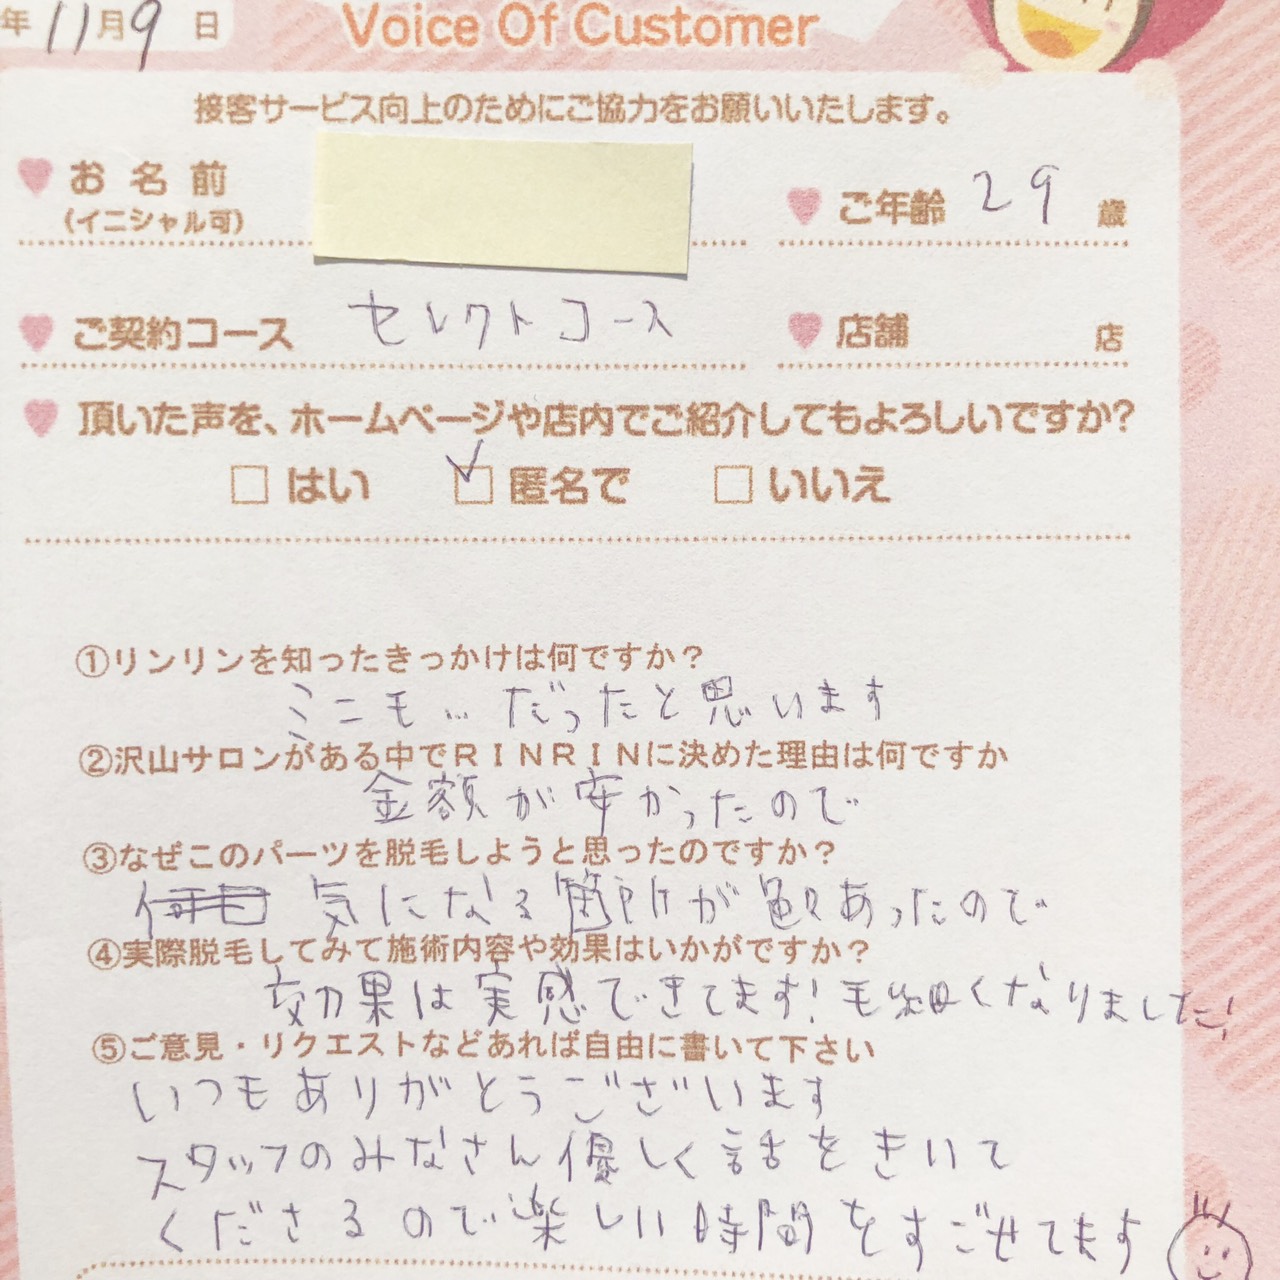 年 11月9日
Voice Of Customer
接客サービス向上のためにご協力をお願いいたします。
お名前
(イニシャル可)
ご年齢 29 歳
ご契約コース セレクトコース
店舗 店
頂いた声を、ホームページや店内でご紹介してもよろしいですか?
はい 匿名で いいえ
①リンリンを知ったきっかけは何ですか？
ミニモ… だったと思います
②沢山サロンがある中でＲＩＮＲＩＮに決めた理由は何ですか
金額が安かったので
③なぜこのパーツを脱毛しようと思ったのですか？
気になる箇所が あったので
④実際脱毛してみて施術内容や効果はいかがですか？
効果は実感できてます！毛細くなりました！
⑤ご意見・リクエストなどあれば自由に書いて下さい
いつもありがとうございます
スタッフのみなさん優しく話をきいて
くださるので楽しい時間をすごせてます